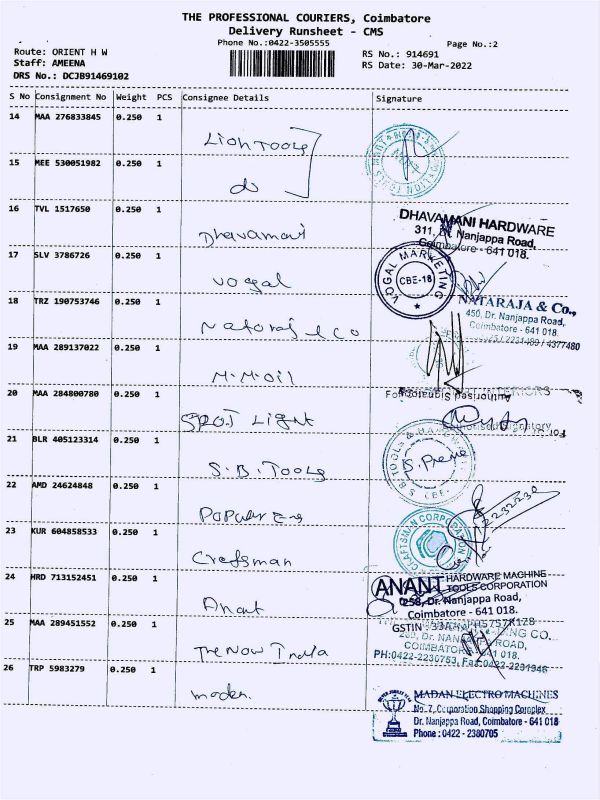 THE PROFESSIONAL COURIERS, Coimbatore
Delivery Runsheet - CMS
Phone No.:0422-3505555
Page No.:2
Route: ORIENT H W
RS No.: 914691
Staff: AMEENA
RS Date: 30-Mar-2022
DRS No.: DCJB91469102
S No Consignment No Weight PCS Consignee Details Signature
14 MAA 276833845 0.250 1
Lion Tools
15 MEE 530051982 0.250 1
do
16 TVL 1517650 0.250 1
Dhavamani
DHAVAMANI HARDWARE
311, Dr. Nanjappa Road,
Coimbatore - 641 018.
17 SLV 3786726 0.250 1
Vogal
VOGAL MARKETING
CBE-18
18 TRZ 190753746 0.250 1
Nataraj & Co
NATARAJA & Co.,
450, Dr. Nanjappa Road,
Coimbatore - 641 018.
/ 4377480
19 MAA 289137022 0.250 1
M.M.Oil
20 MAA 284800780 0.250 1
Spot Light
Authorised Signatory
INTERIORS
Authorised Signatory
For
21 BLR 405123314 0.250 1
S.B. Tools
S.B. TOOLS &
CBE-
22 AMD 24624848 0.250 1
Popular Eng
23 KUR 604858533 0.250 1
Craftsman
CRAFTSMAN CORPORATION
24 HRD 713152451 0.250 1
Anat
ANANT HARDWARE MACHINE
TOOLS CORPORATION
258, Dr. Nanjappa Road,
Coimbatore - 641 018.
GSTIN :
25 MAA 289451552 0.250 1
The Now India
CO.
ROAD,
COIMBATORE 641 018.
PH:0422-2230753, Fax:0422-2231946
26 TRP 5983279 0.250 1
Moden
MADAN ELECTRO MACHINES
No. 7, Corporation Shopping Complex
Dr. Nanjappa Road, Coimbatore - 641 018
Phone : 0422 - 2380705